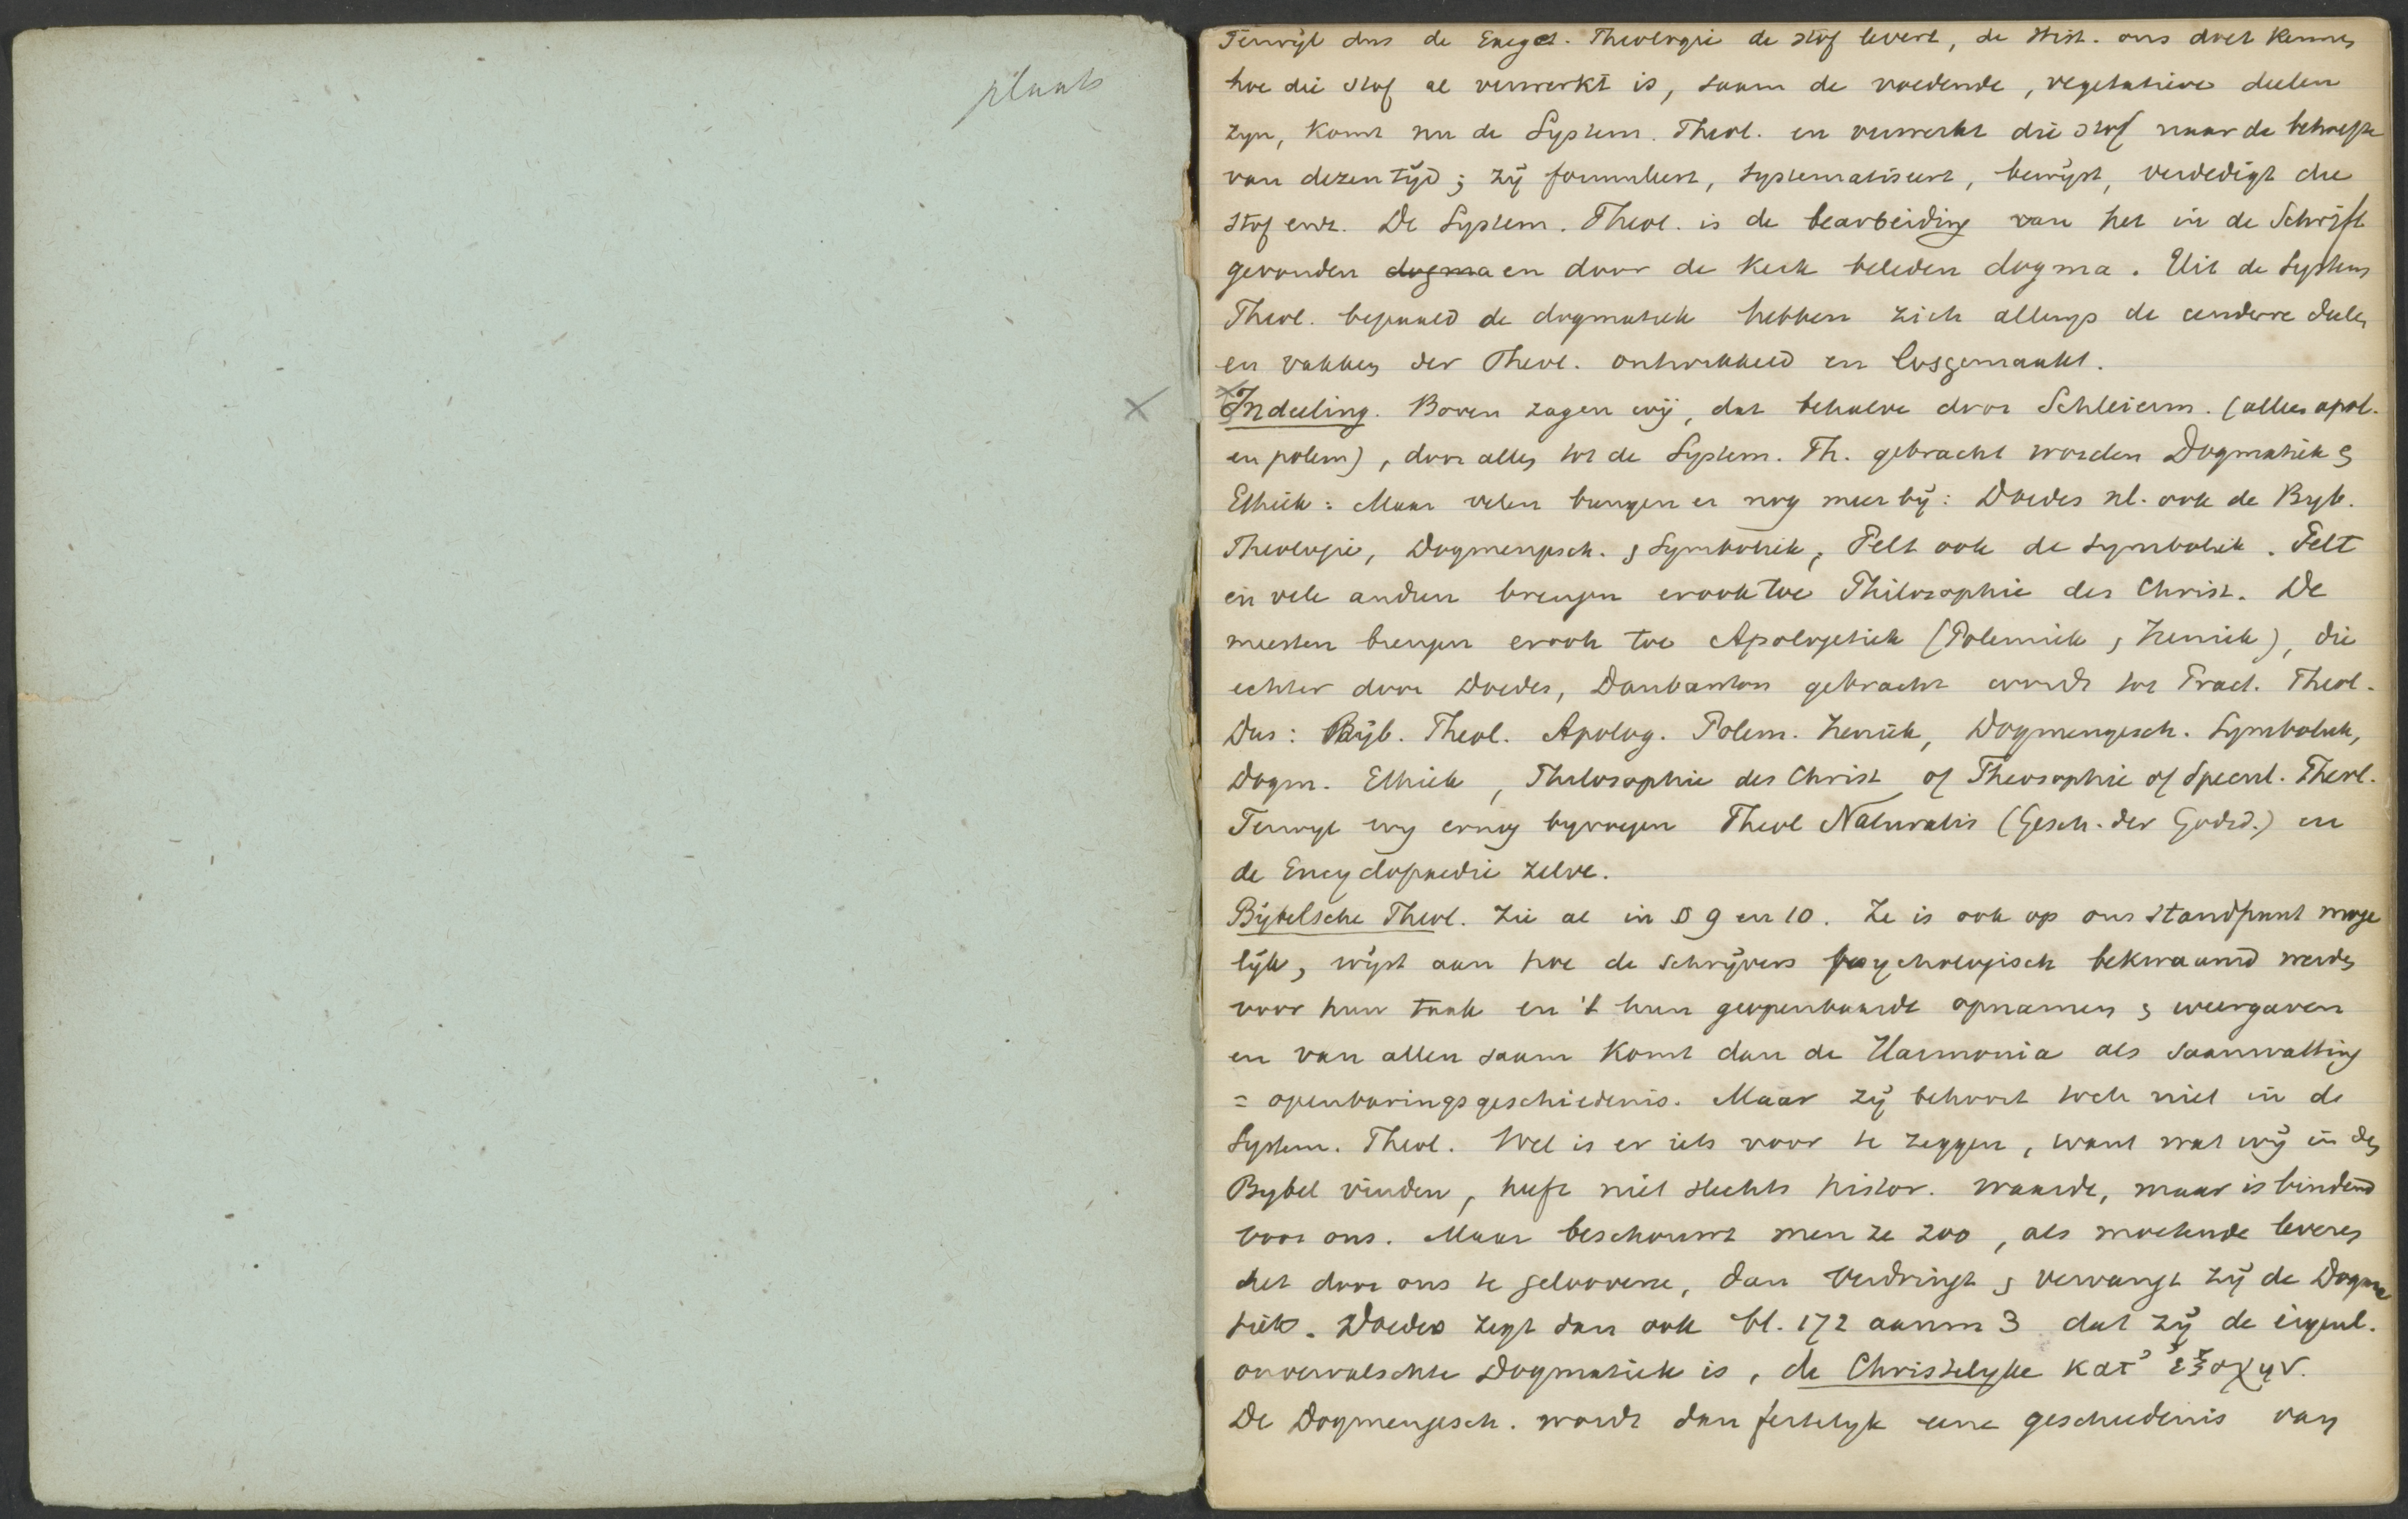 plaats
Terwijl dus de Exeget. Theologie de stof levert, de Hist. ons doet kennen
hoe die stof al verwerkt is, saam de voedende, vegetatieve deelen
zyn, komt nu de System. Theol. en verwerkt die stof naar de behoefte
van dezen tijd; zij formuleert, systematiseert, bewijst, verdedigt die
stof enz. De System. Theol. is de bearbeiding van het in de Schrift
gevonden dogma en door de Kerk beleden dogma. Uit de System
Theol. bepaald de dogmatiek hebben zich allengs de andere deelen
en vakken der Theol. ontwikkeld en losgemaakt.
x Indeeling. Boven zagen wij, dat behalve door Schleierm. (alleen apol.
en polem), door allen tot de System. Th. gebracht worden Dogmatiek &
Ethiek: Maar velen brengen er nog meer bij: Doedes nl. ook de Byb.
Theologie, Dogmengesch. & Symboliek, Pelt ook de Symboliek. Pelt
en vele andren brengen er ook toe Philosophie des Christ. De
meesten brengen er ook toe Apologetiek (Polemiek & Ireniek), die
echter door Doedes, Daubanton gebracht wordt tot Pract. Theol.
Dus: Bijb. Theol. Apolog. Polem. Ireniek, Dogmengesch. Symboliek,
Dogm. Ethiek, Philosophie des Christ of Theosophie of Specul. Theol.
Terwyl wy er nog byvoegen Theol Naturalis (Gesch. der Godsd.) en
de Encyclopaedie zelve.
Bijbelsche Theol. Zie al in § 9 en 10. Ze is ook op ons standpunt moge
lijk, wijst aan hoe de schrijvers psychologisch bekwaamd werden
voor hun taak en 't hun geopenbaarde opnamen & weergaven
en van allen saam komt dan de Harmonia als saamvatting
= openbaringsgeschiedenis. Maar zij behoort toch niet in de
System. Theol. Wel is er iets voor te zeggen, want wat wij in den
Bybel vinden, heeft niet slechts histor. waarde, maar is bindend
voor ons. Maar beschouwt men ze zoo, als moetende leveren
het door ons te geloovene, dan verdringt & vervangt zij de Dogma
tiek. Doedes zegt dan ook bl. 172 aanm 3 dat zij de eigenl.
onvervalschte Dogmatiek is, de Christelyke κατ' ἐξοχην.
De Dogmengesch. wordt dan feitelyk eene geschiedenis van